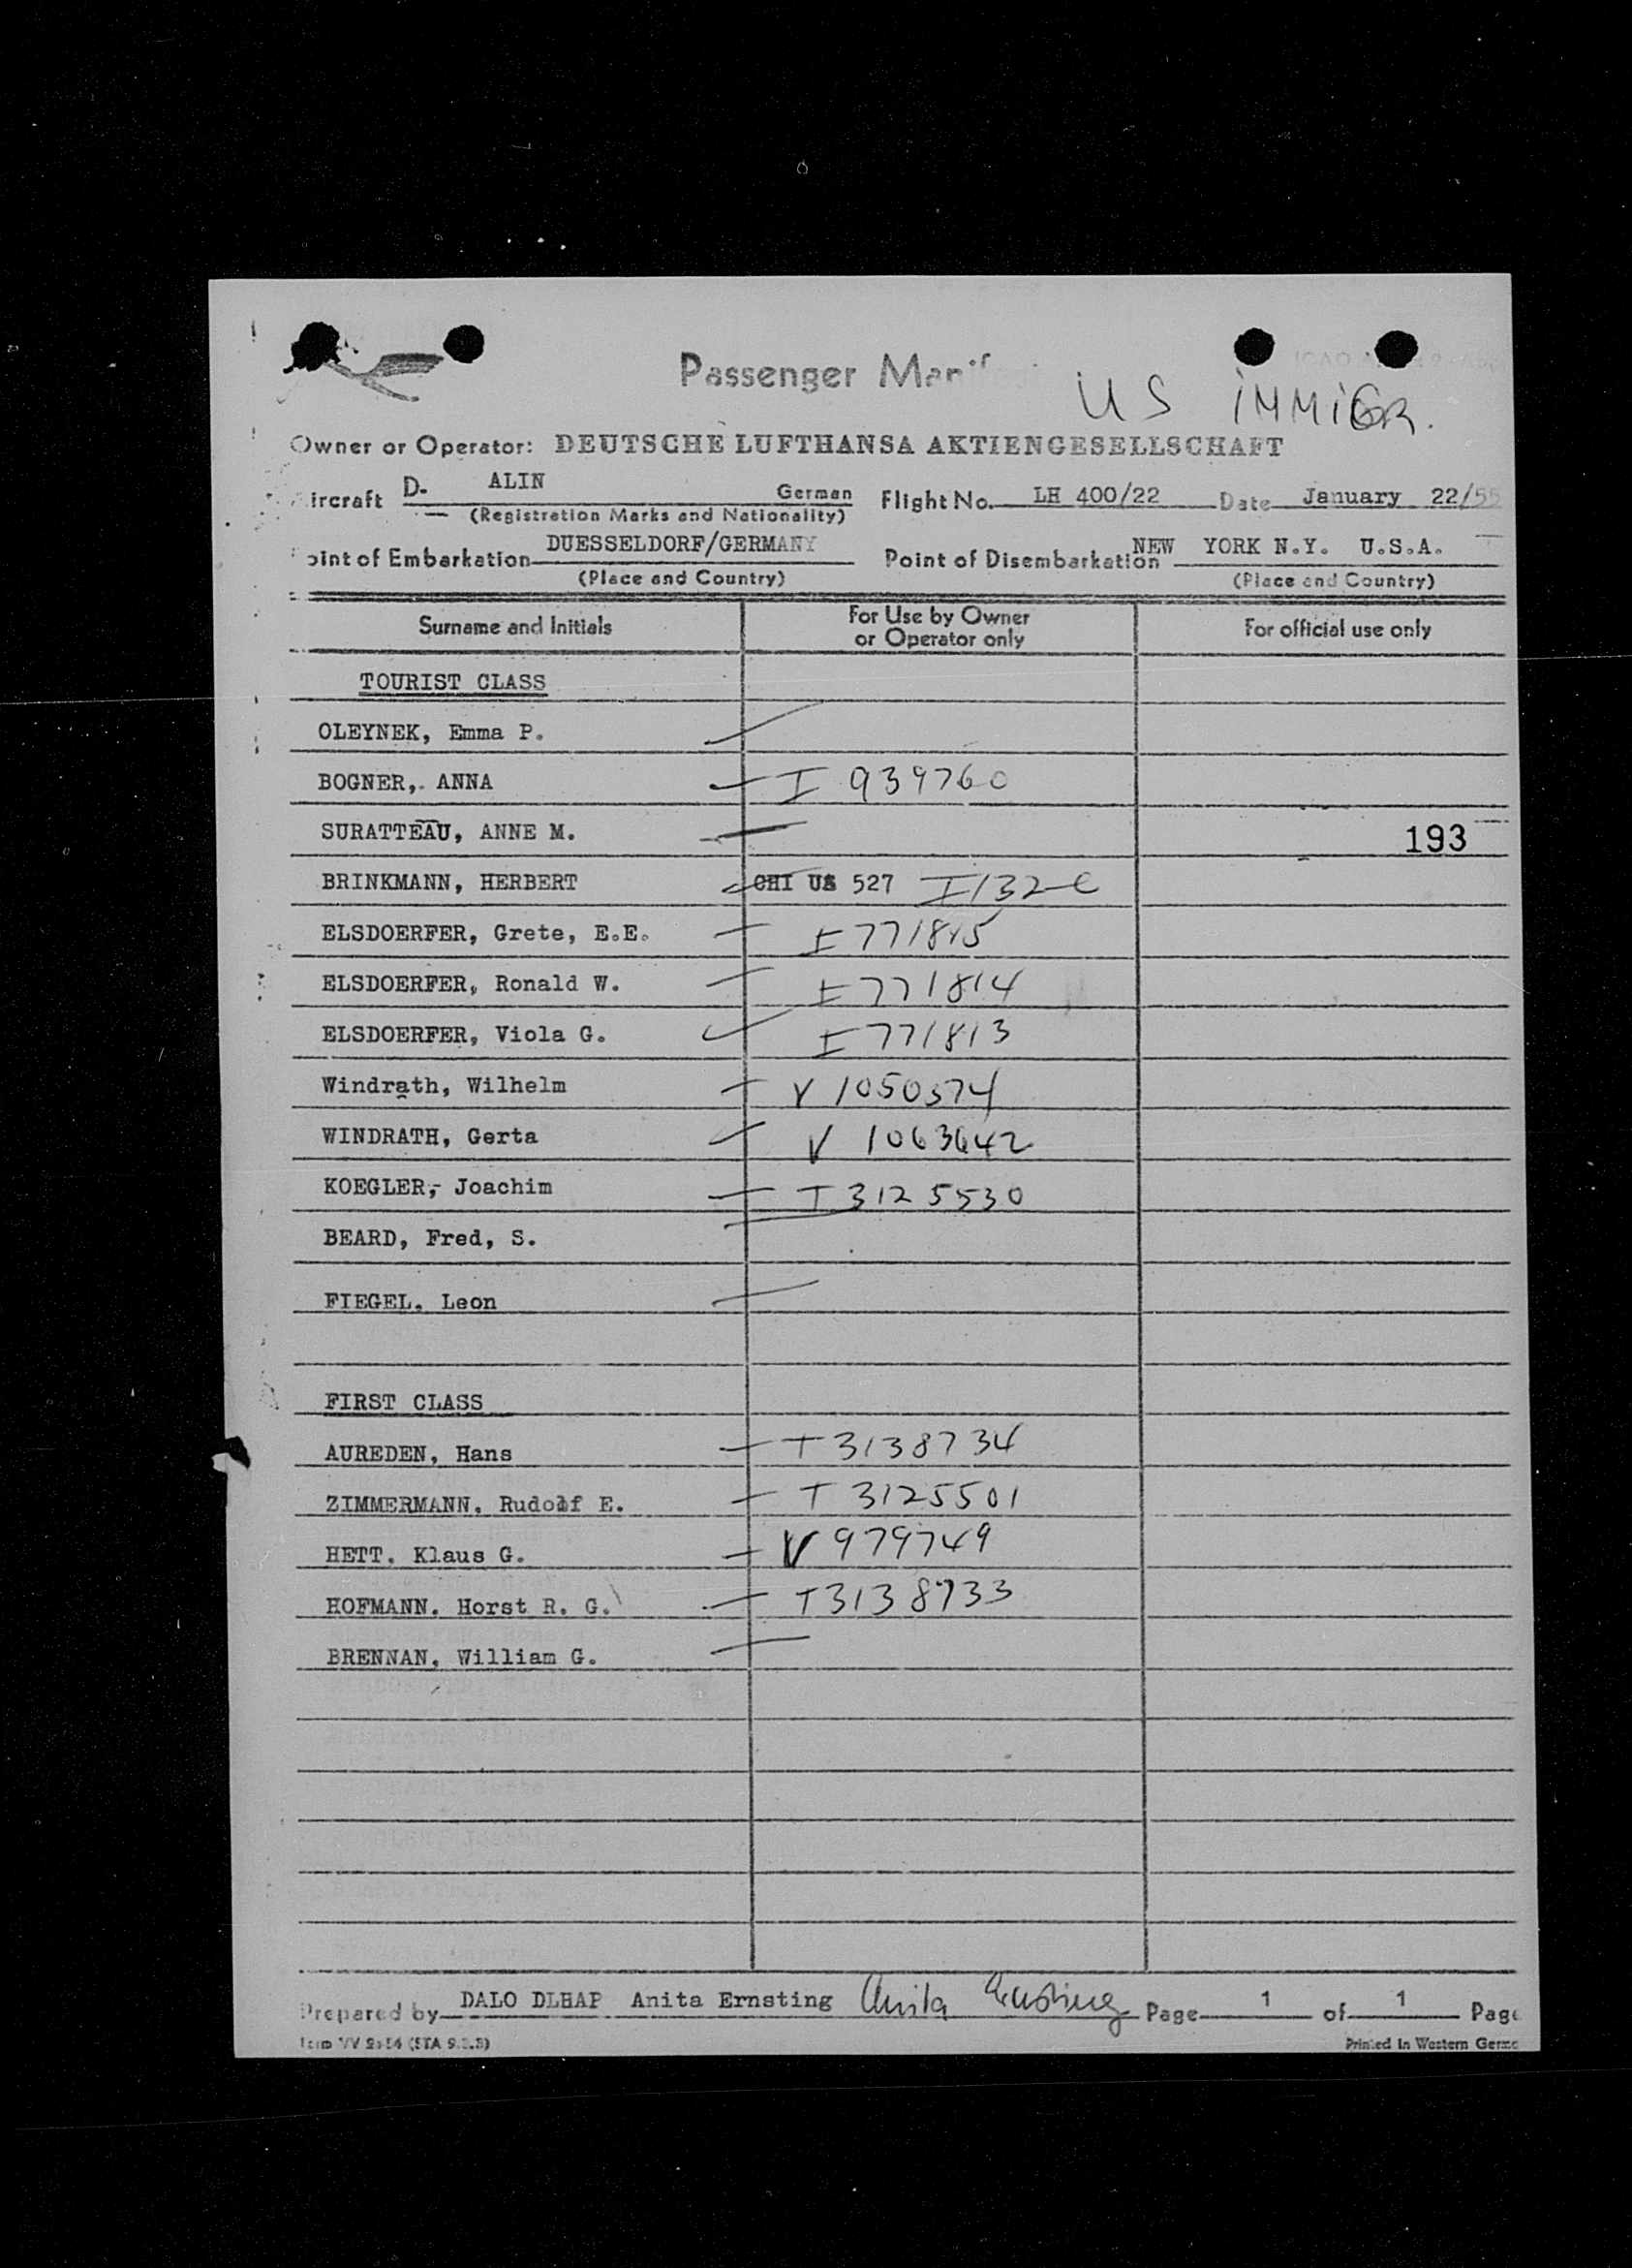 Passenger Manif
US IMMIGR.
Owner or Operator: DEUTSCHE LUFTHANSA AKTIENGESELLSCHAFT
Aircraft D- ALIN German Flight No. LH 400/22 Date January 22/55
(Registration Marks and Nationality)
Point of Embarkation DUESSELDORF/GERMANY Point of Disembarkation NEW YORK N.Y. U.S.A.
(Place and Country) (Place and Country)
Surname and Initials For Use by Owner or Operator only For official use only
TOURIST CLASS
OLEYNEK, Emma P.
BOGNER, ANNA I 939760
SURATTEAU, ANNE M. 193
BRINKMANN, HERBERT CHI US 527 I132
ELSDOERFER, Grete, E.E. I 771815
ELSDOERFER, Ronald W. I 771814
ELSDOERFER, Viola G. I 771813
Windrath, Wilhelm V 1050574
WINDRATH, Gerta V 1063642
KOEGLER,- Joachim T 3125530
BEARD, Fred, S.
FIEGEL, Leon
FIRST CLASS
AUREDEN, Hans T 3138734
ZIMMERMANN, Rudolf E. T 3125501
HETT, Klaus G. V 979749
HOFMANN, Horst R. G. T3138733
BRENNAN, William G.
Prepared by DALO DLHAP Anita Ernsting Anita Ernsting Page 1 of 1 Page
Printed in Western Germ